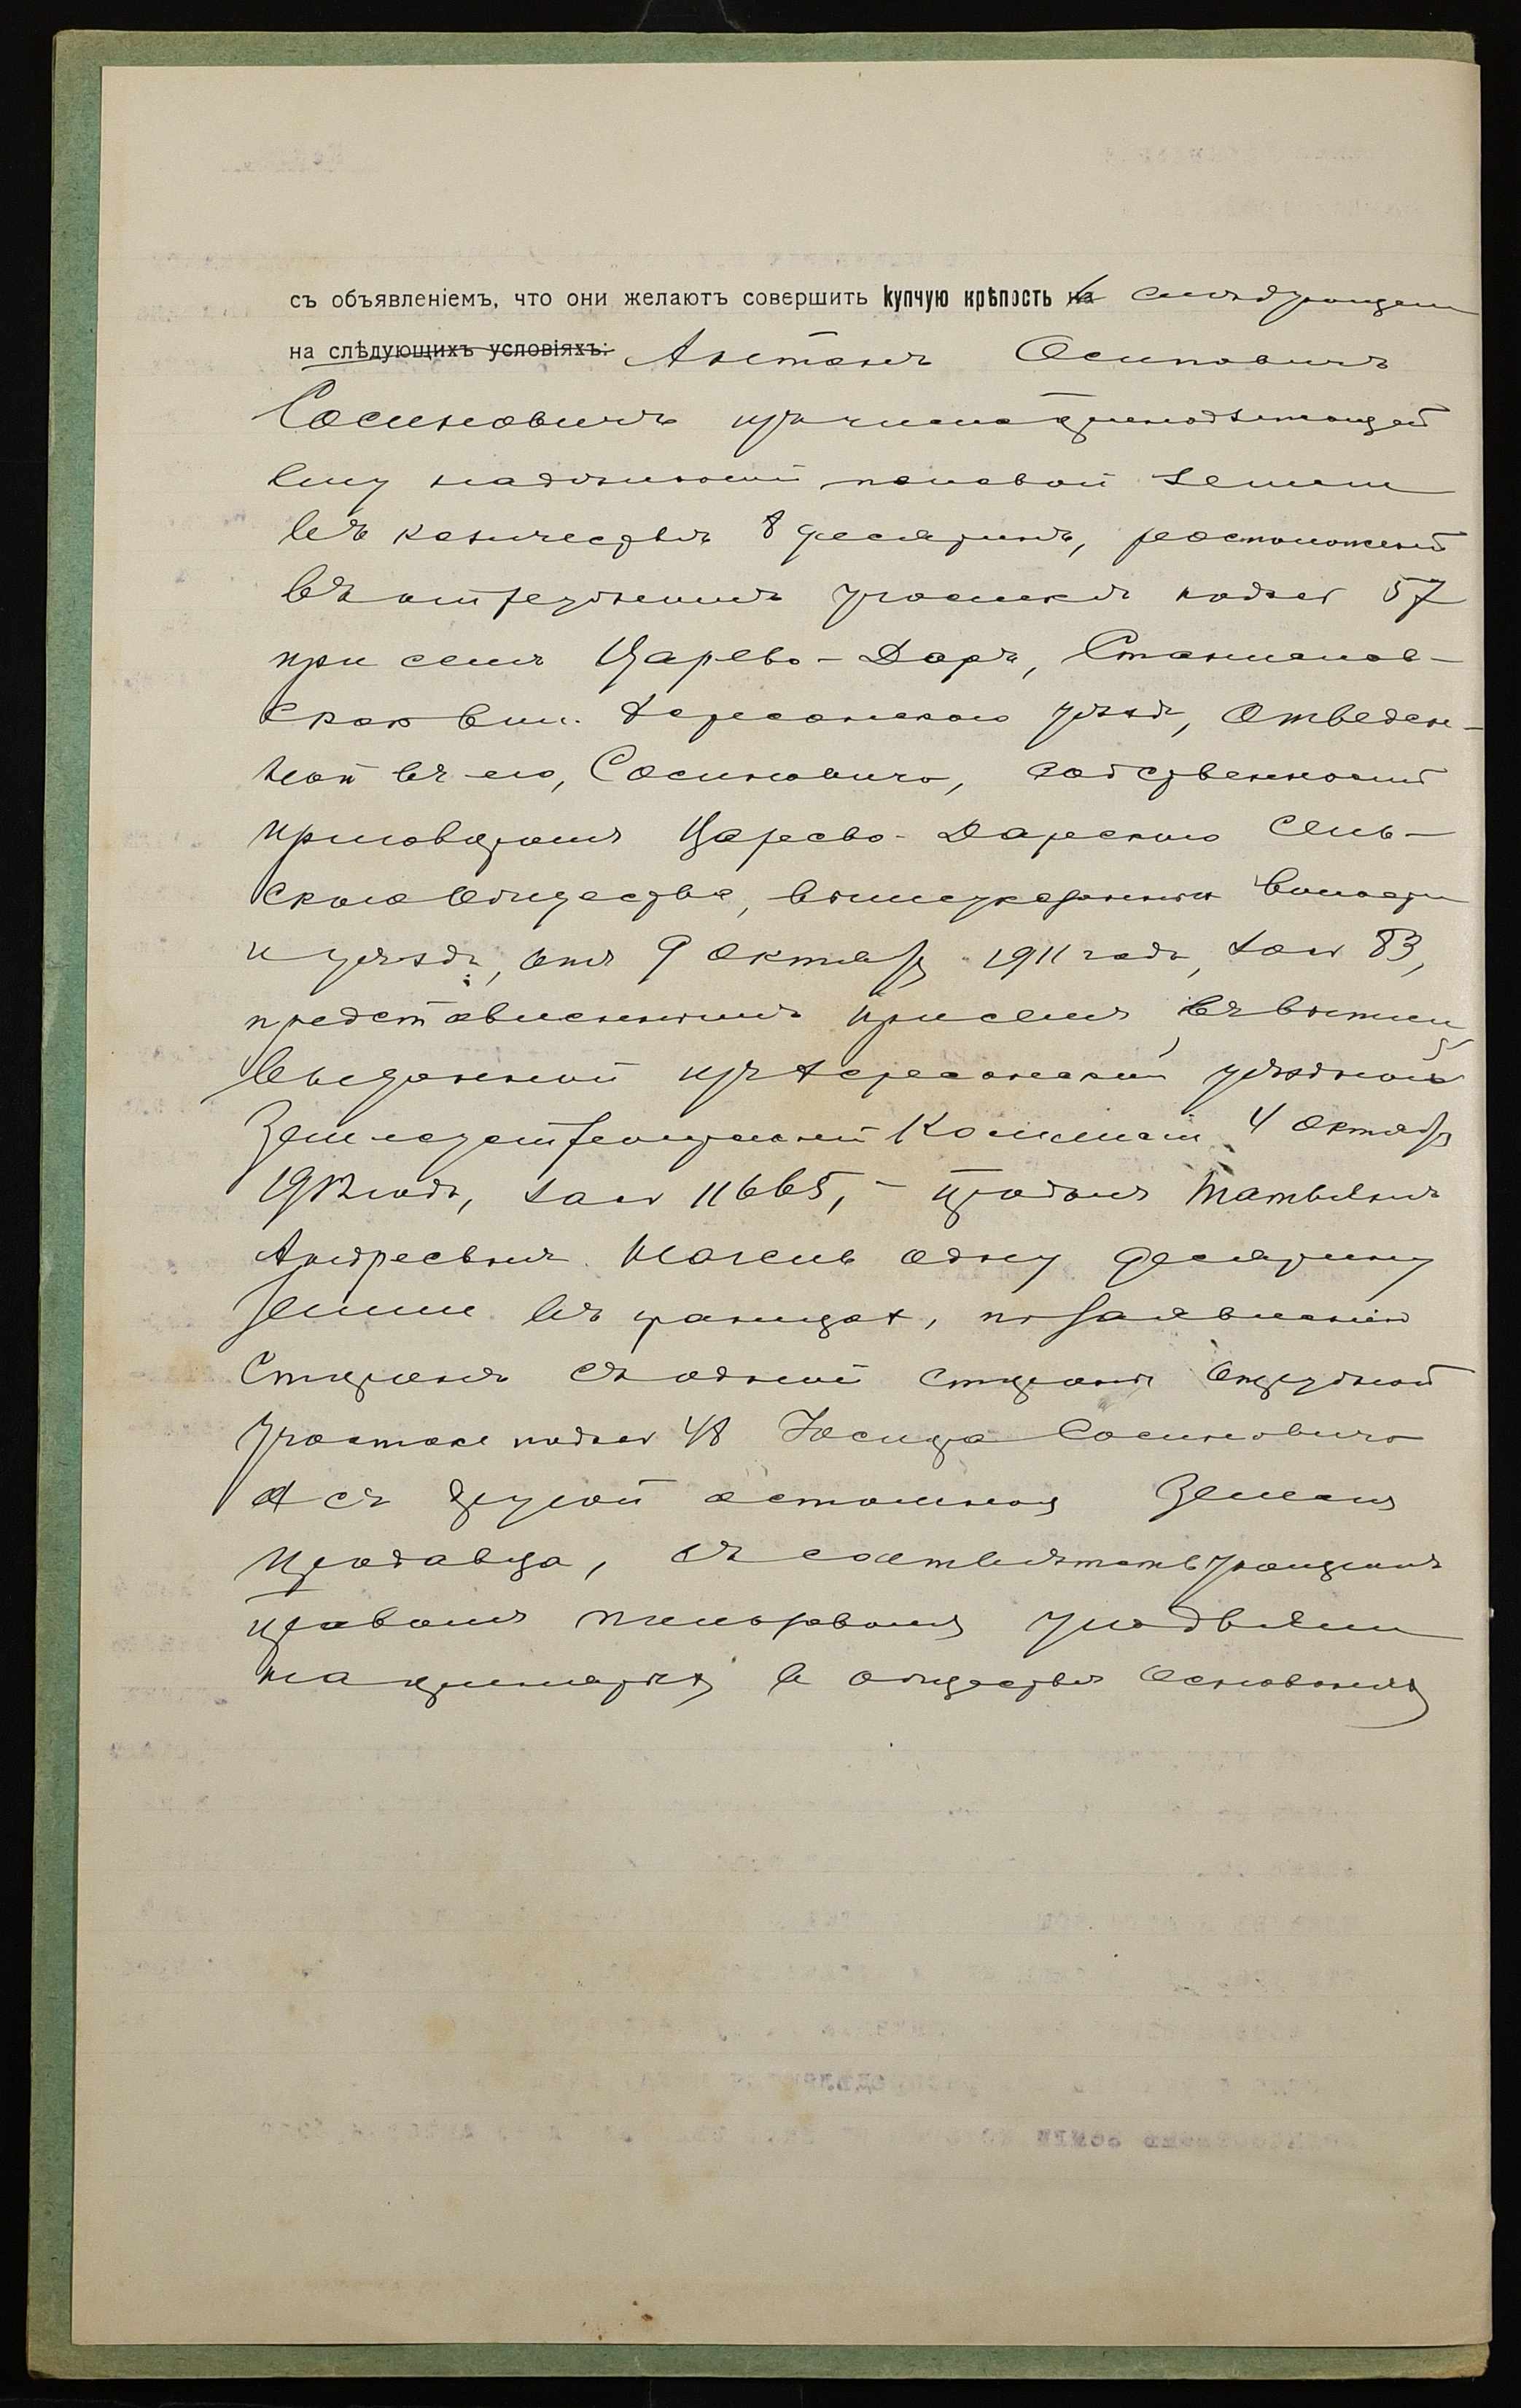 съ объявленіемъ, что они желаютъ совершить купчую крѣпость на слѣдующемъ
на слѣдующихъ условіяхъ: Антонъ Осиповичъ
Сосиновичъ изъ числа принадлежащей
ему надѣльной полевой земли
въ количествѣ 8 десятинъ, расположенной
въ отрубномъ участкѣ подъ № 57
при селѣ Царево-Даръ, Станислав-
ской вол. Херсонскаго уѣзда, отведен-
ной въ его, Сосиновича, собственность
приговоромъ Царево-Дарскаго Сель-
скаго Общества, вышеуказанныхъ волости
и уѣзда, отъ 9 Октября 1911 года, за № 83,
представленнымъ при семъ въ выписи
выданной изъ Херсонской уѣздной
Землеустроительной Коммисіи 4 Октября
1912 года, за № 11665, – продалъ Татьянѣ
Андреевнѣ одну десятину
земли въ границахъ, по заявленію
Сторонъ съ одной стороны отрубной
участокъ подъ № 48 Іосифа Сосиновича
а съ другой остальная земля
продавца, съ соотвѣтствующимъ
правомъ пользованія угодьями
на принятыхъ въ обществѣ основаніяхъ